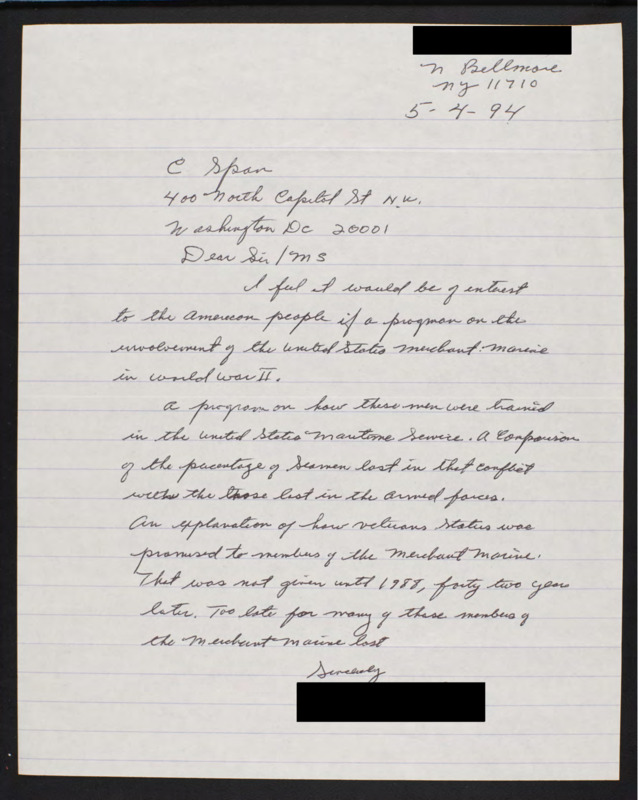 N Bellmore
NY 11710
5-4-94
C Span
400 North Capitol St N.W.
Washington DC 20001
Dear Sir/MS
I feel it would be of interest
to the American people if a program on the
involvement of the United States Merchant Marine
in World War II.
A program on how these men were trained
in the United States Maritime Service. A Comparison
of the pecentage of Seamen lost in that conflict
with the those lost in the armed forces.
An explanation of how veterans status was
promised to members of the Merchant Marine.
That was not given until 1988, forty two year
later. Too late for many of those members of
the Merchant Marine lost
Sincerely